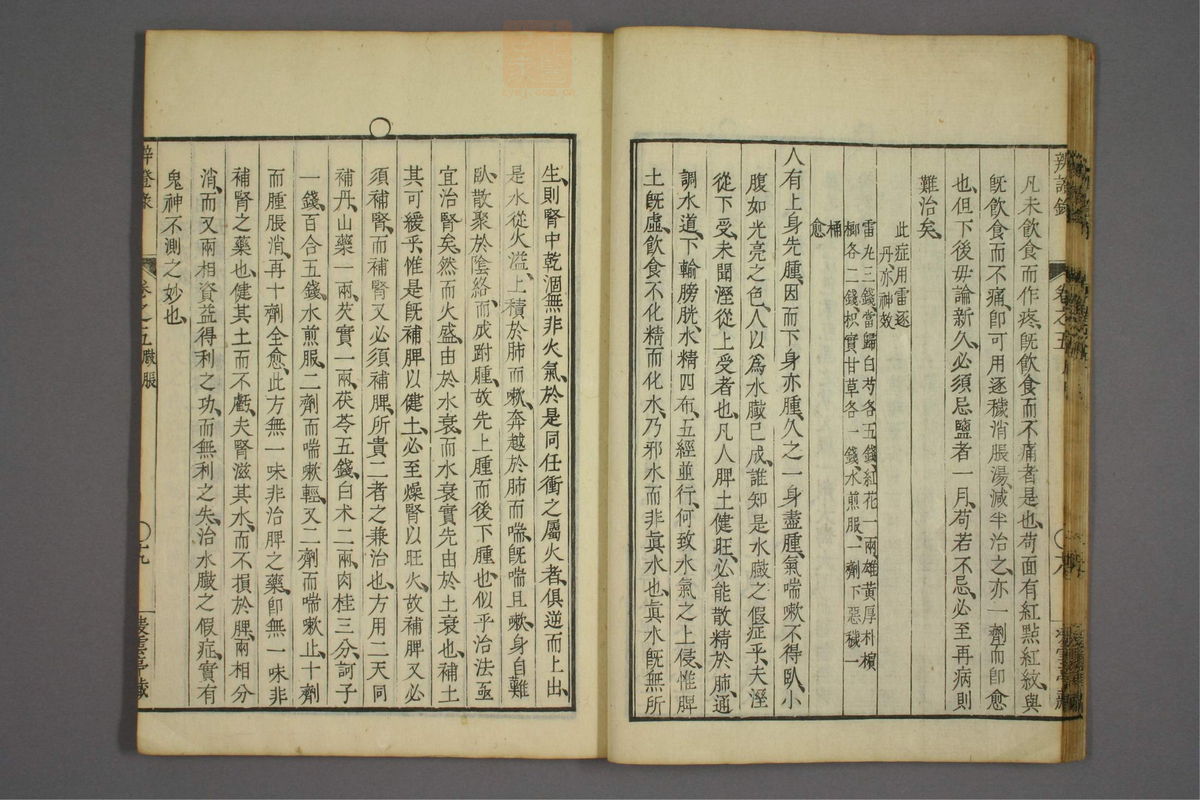 凡未飲食而作疼、既飲食而不痛者是也、苟面有紅點紅紋、與
既飲食而不痛、卽可用逐穢消脹湯、減半治之、亦一劑而卽愈
也、但下後毋論新久、必須忌鹽者一月、苟若不忌、必至再病、則
難治矣、
此症用雷逐
丹亦神效
雷丸三錢、當歸白芍各五錢、紅花一兩、雄黃厚朴檳
榔各二錢、枳實甘草各一錢、水煎服、一劑下惡穢一
桶愈
人有上身先腫、因而下身亦腫、久之一身盡腫、氣喘嗽不得臥、小
腹如光亮之色、人以爲水臌已成、誰知是水臌之假症乎、夫溼
從下受、未聞溼從上受者也、凡人脾土健旺、必能散精於肺、通
調水道、下輸膀胱、水精四布、五經並行、何致水氣之上侵、惟脾
土既虛、飲食不化精而化水、乃邪水而非眞水也、眞水既無所
生、則腎中乾涸、無非火氣、於是同任衝之屬火者、俱逆而上出、
是水從火溢、上積於肺而嗽、奔越於肺而喘、既喘且嗽、身自難
臥、散聚於陰絡、而成跗腫、故先上腫而後下腫也、似乎治法亟
宜治腎矣、然而火盛、由於水衰、而水衰實先由於土衰也、補土
其可緩乎、惟是既補脾以健土、必至燥腎以旺火、故補脾又必
須補腎、而補腎又必須補脾、所貴二者之兼治也、方用二天同
補丹、山藥一兩、芡實一兩、茯苓五錢、白朮二兩、肉桂三分、訶子
一錢、百合五錢、水煎服、二劑而喘嗽輕、又二劑而喘嗽止、十劑
而腫脹消、再十劑全愈、此方無一味非治脾之藥、卽無一味非
補腎之藥也、健其土而不虧夫腎、滋其水、而不損於脾、兩相分
消、而又兩相資益、得利之功、而無利之失、治水臌之假症、實有
鬼神不測之妙也、
辨證錄
卷之五 臌脹
十九